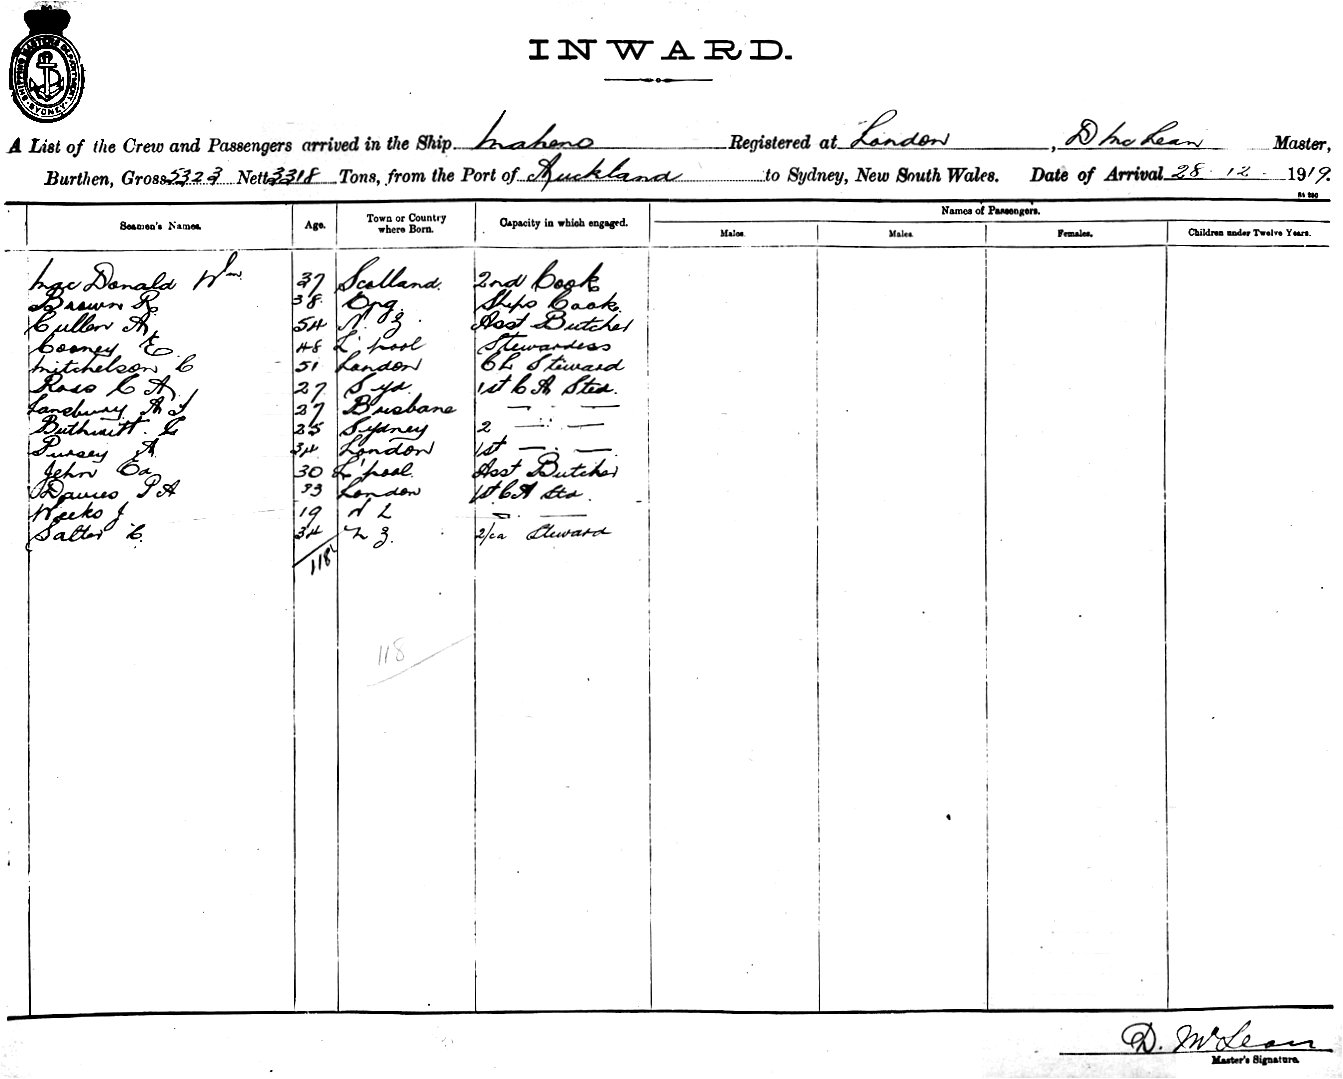 SHIPPING MASTERS DEPARTMENT SYDNEY
INWARD.
A List of the Crew and Passengers arrived in the Ship Maheno Registered at London, D McLean Master,
Burthen, Gross 5323 Nett 3318 Tons, from the Port of Auckland to Sydney, New South Wales. Date of Arrival 28 . 12 . 1919.
Names of Passengers.
Seamen's Names. Age. Town or Country where Born. Capacity in which engaged. Males. Males. Females. Children under Twelve Years.
MacDonald Wm 37 Scotland. 2nd Cook
Brown R. 38 Eng Ships Cook.
Cullen A. 54 N. Z. Asst Butcher
Cooney E. 48 L'pool Stewardess
Mitchelson C 51 London Ch Steward
Ross C A. 27 Syd. 1st C A Sted.
Lansbury A J 27 Brisbane — " —
25 Sydney 2 — " —
Pursey A 34 London 1st — " —
John Ed 30 L'pool. Asst Butcher
Davies P A 33 London 1st C A Std.
Weeks J 19 — " —
Salter C. 34 N Z. 2/ca Steward
118
118
D. McLean
Master's Signature.